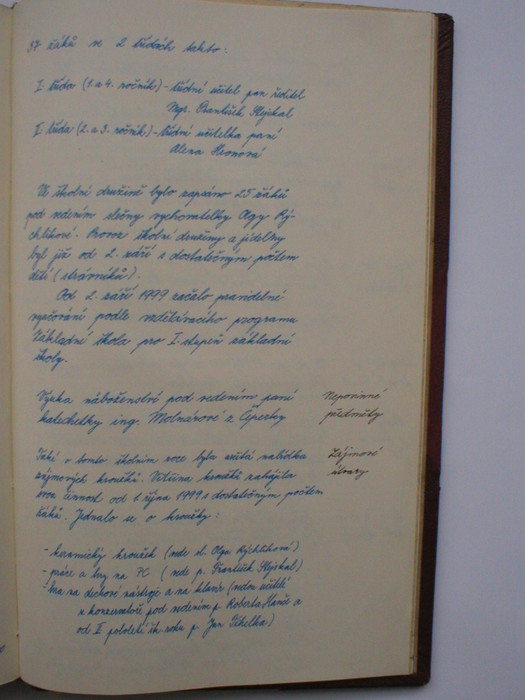 37 žáků ve 2 třídách takto:
I třída (1. a 4. ročník) - třídní učitel pan ředitel
Mgr. František Stejskal
II třída (2. a 3. ročník) - třídní učitelka paní
Alena
Ve školní družině bylo zapsáno 25 žáků
pod vedením slečny vychovatelky Olgy Rý-
chlíkové. Provoz školní družiny a jídelny
byl již od 2. září s dostatečným počtem
dětí (strávníků).
Od 2. září 1999 začalo pravidelné
vyučování podle vzdělávacího programu
Základní škola pro I. stupeň základní
školy.
Výuka náboženství pod vedením paní
Nepovinné
katechetky ing. Molnárové z Čeperky
předměty
Také v tomto školním roce byla nabídka
Zájmové
zájmových kroužků. Většina kroužků zahájila
útvary
svou činnost od 1. října 1999 s dostatečným počtem
žáků. Jednalo se o kroužky:
- keramický kroužek (vede sl. Olga Rýchlíková)
- práce a hry na PC (vede p. František Stejskal)
- hra na dechové nástroje a na klavír (vedou učitelé
z konzervatoře pod vedením p. Roberta a
od II pololetí šk. roku p. Jan